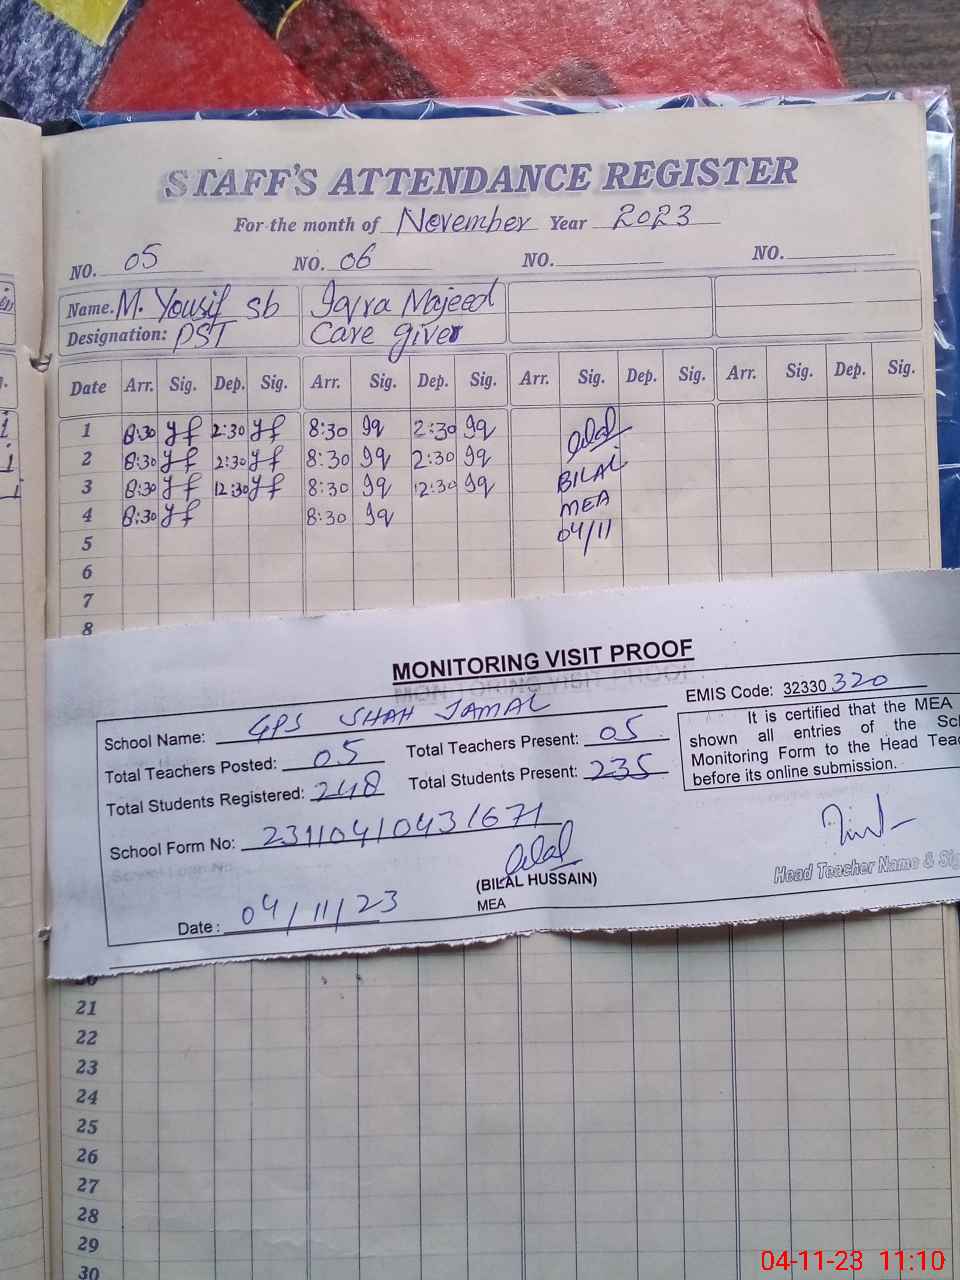 STAFF'S ATTENDANCE REGISTER
For the month of November Year 2023
NO. 05 NO. 06 NO. NO.
Name. M. Yousif Sb Iqra Majeed
Designation: PST Care giver
Date Arr. Sig. Dep. Sig. Arr. Sig. Dep. Sig. Arr. Sig. Dep. Sig. Arr. Sig. Dep. Sig.
1 8:30 yf 2:30 yf 8:30 Iq 2:30 Iq
2 8:30 yf 2:30 yf 8:30 Iq 2:30 Iq BILAL
3 8:30 yf 12:30 yf 8:30 Iq 12:30 Iq MEA
4 8:30 yf 8:30 Iq 04/11
5
6
7
8
MONITORING VISIT PROOF
EMIS Code: 32330 320
School Name: GPS SHAH JAMAL
It is certified that the MEA
shown all entries of the Sch
Monitoring Form to the Head Teac
before its online submission.
Total Teachers Posted: 05 Total Teachers Present: 05
Total Students Registered: 248 Total Students Present: 235
School Form No: 23110410431671
(BILAL HUSSAIN)
MEA
Head Teacher Name & Sig
Date: 04/11/23
20
21
22
23
24
25
26
27
28
29
30
04-11-23 11:10